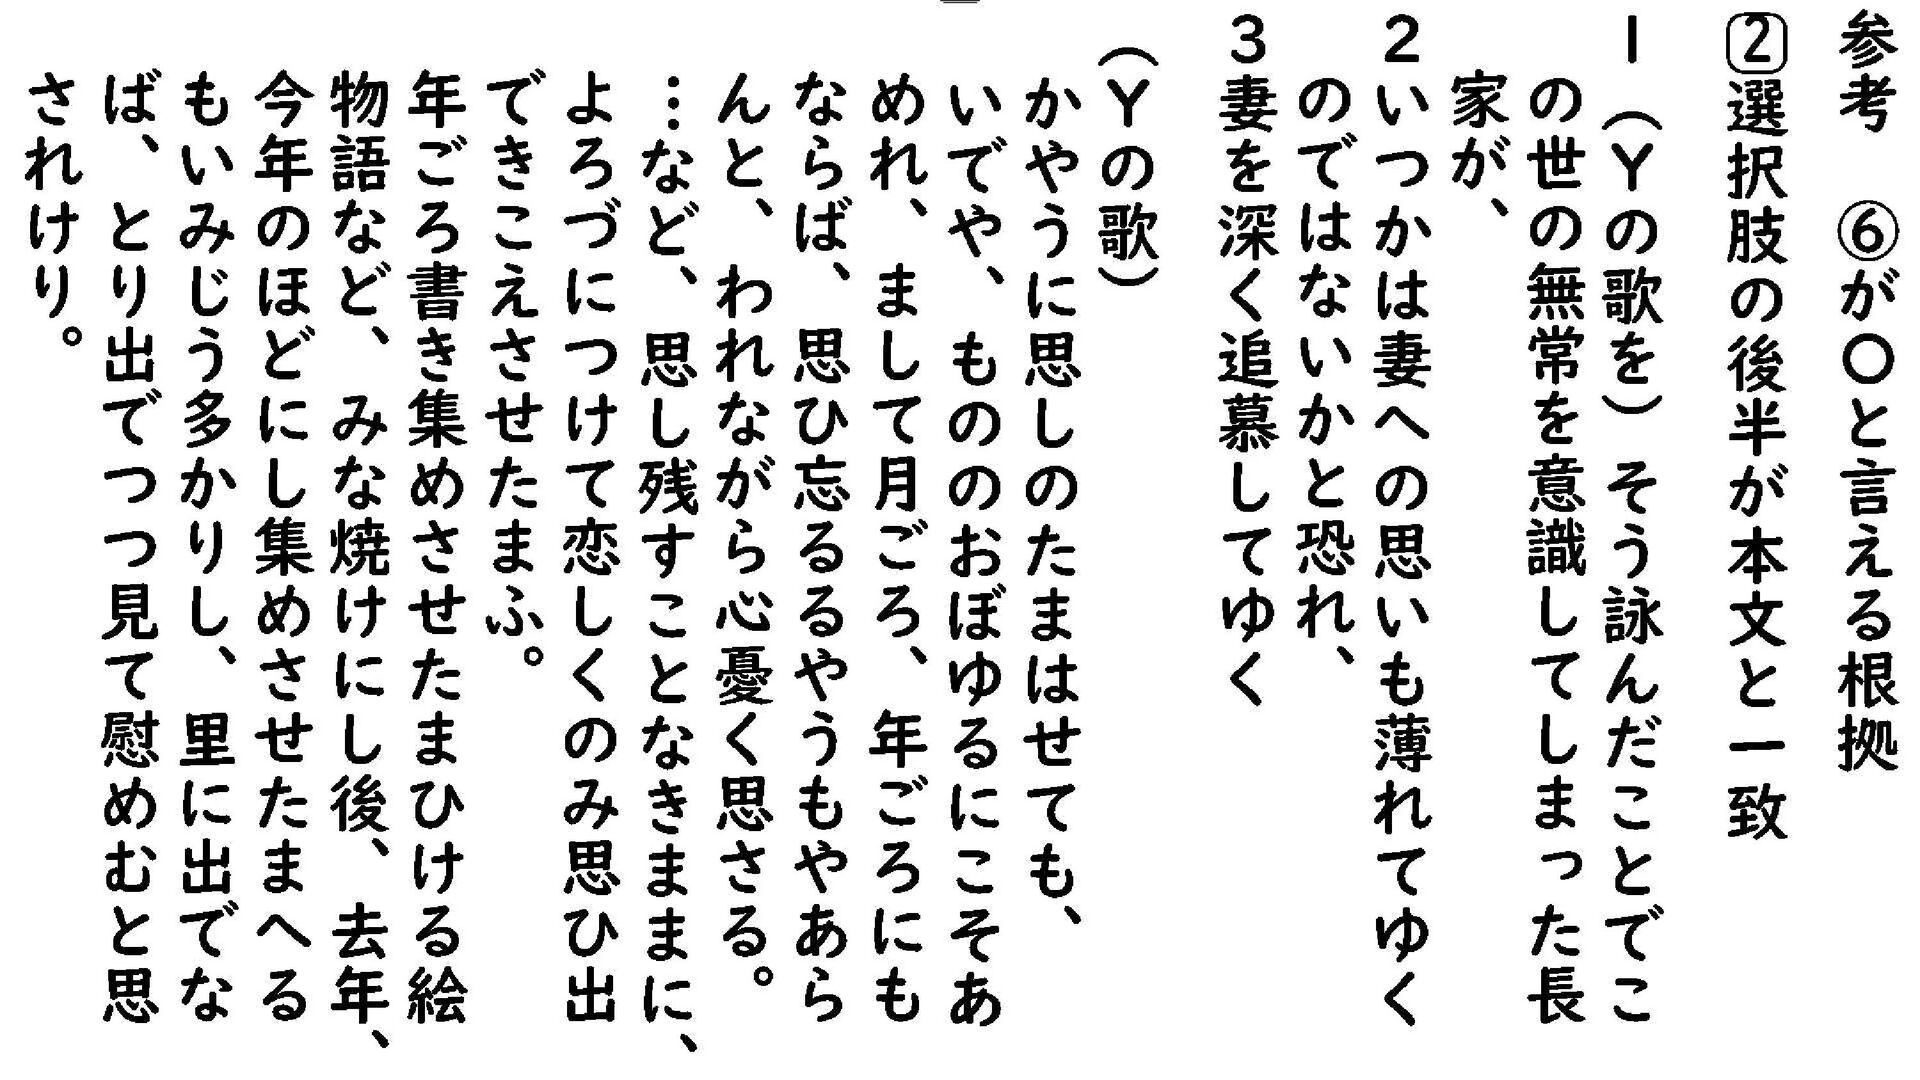 参考　⑥が〇と言える根拠
②選択肢の後半が本文と一致
1（Yの歌を）そう詠んだことでこ
の世の無常を意識してしまった長
家が、
2いつかは妻への思いも薄れてゆく
のではないかと恐れ、
3妻を深く追慕してゆく
（Yの歌）
かやうに思しのたまはせても、
いでや、もののおぼゆるにこそあ
めれ、まして月ごろ、年ごろにも
ならば、思ひ忘るるやうもやあら
んと、われながら心憂く思さる。
…など、思し残すことなきままに、
よろづにつけて恋しくのみ思ひ出
できこえさせたまふ。
年ごろ書き集めさせたまひける絵
物語など、みな焼けにし後、去年、
今年のほどにし集めさせたまへる
もいみじう多かりし、里に出でな
ば、とり出でつつ見て慰めむと思
されけり。